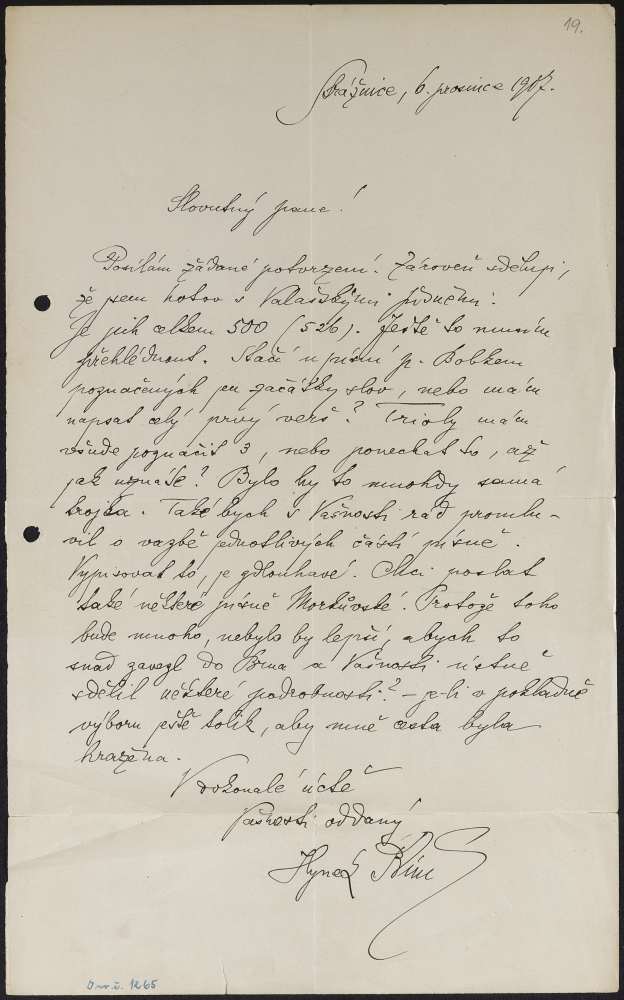 19.
Strážnice, 6. prosince 1907.
Slovutný pane!
Posílám žádané potvrzení. Zároveň sděluji,
že jsem hotov s Valašskými písněmi.
Je jich celkem 500 (526). Ještě to musím
přehlédnout. Stačí u písní p. Bobkem
poznačených jen začátky slov, nebo mám
napsat celý prvý verš? Trioly mám
všude poznačit 3, nebo ponechat to, až
jak uznáte? Bylo by to mnohdy samá
trojka. Také bych s Vašností rád promlu-
vil o vazbě jednotlivých částí písně.
Vypisovat to, je zdlouhavé. Chci poslat
také některé písně Morkůvské. Protože toho
bude mnoho, nebylo by lepší, abych to
snad zavezl do Brna a Vašnosti ústně
sdělil některé podrobnosti? – je-li v pokladně
výboru ještě tolik, aby mně cesta byla
hražena.
V dokonalé úctě
Vašnosti oddaný
Hynek Bím
Inv. č. 1265